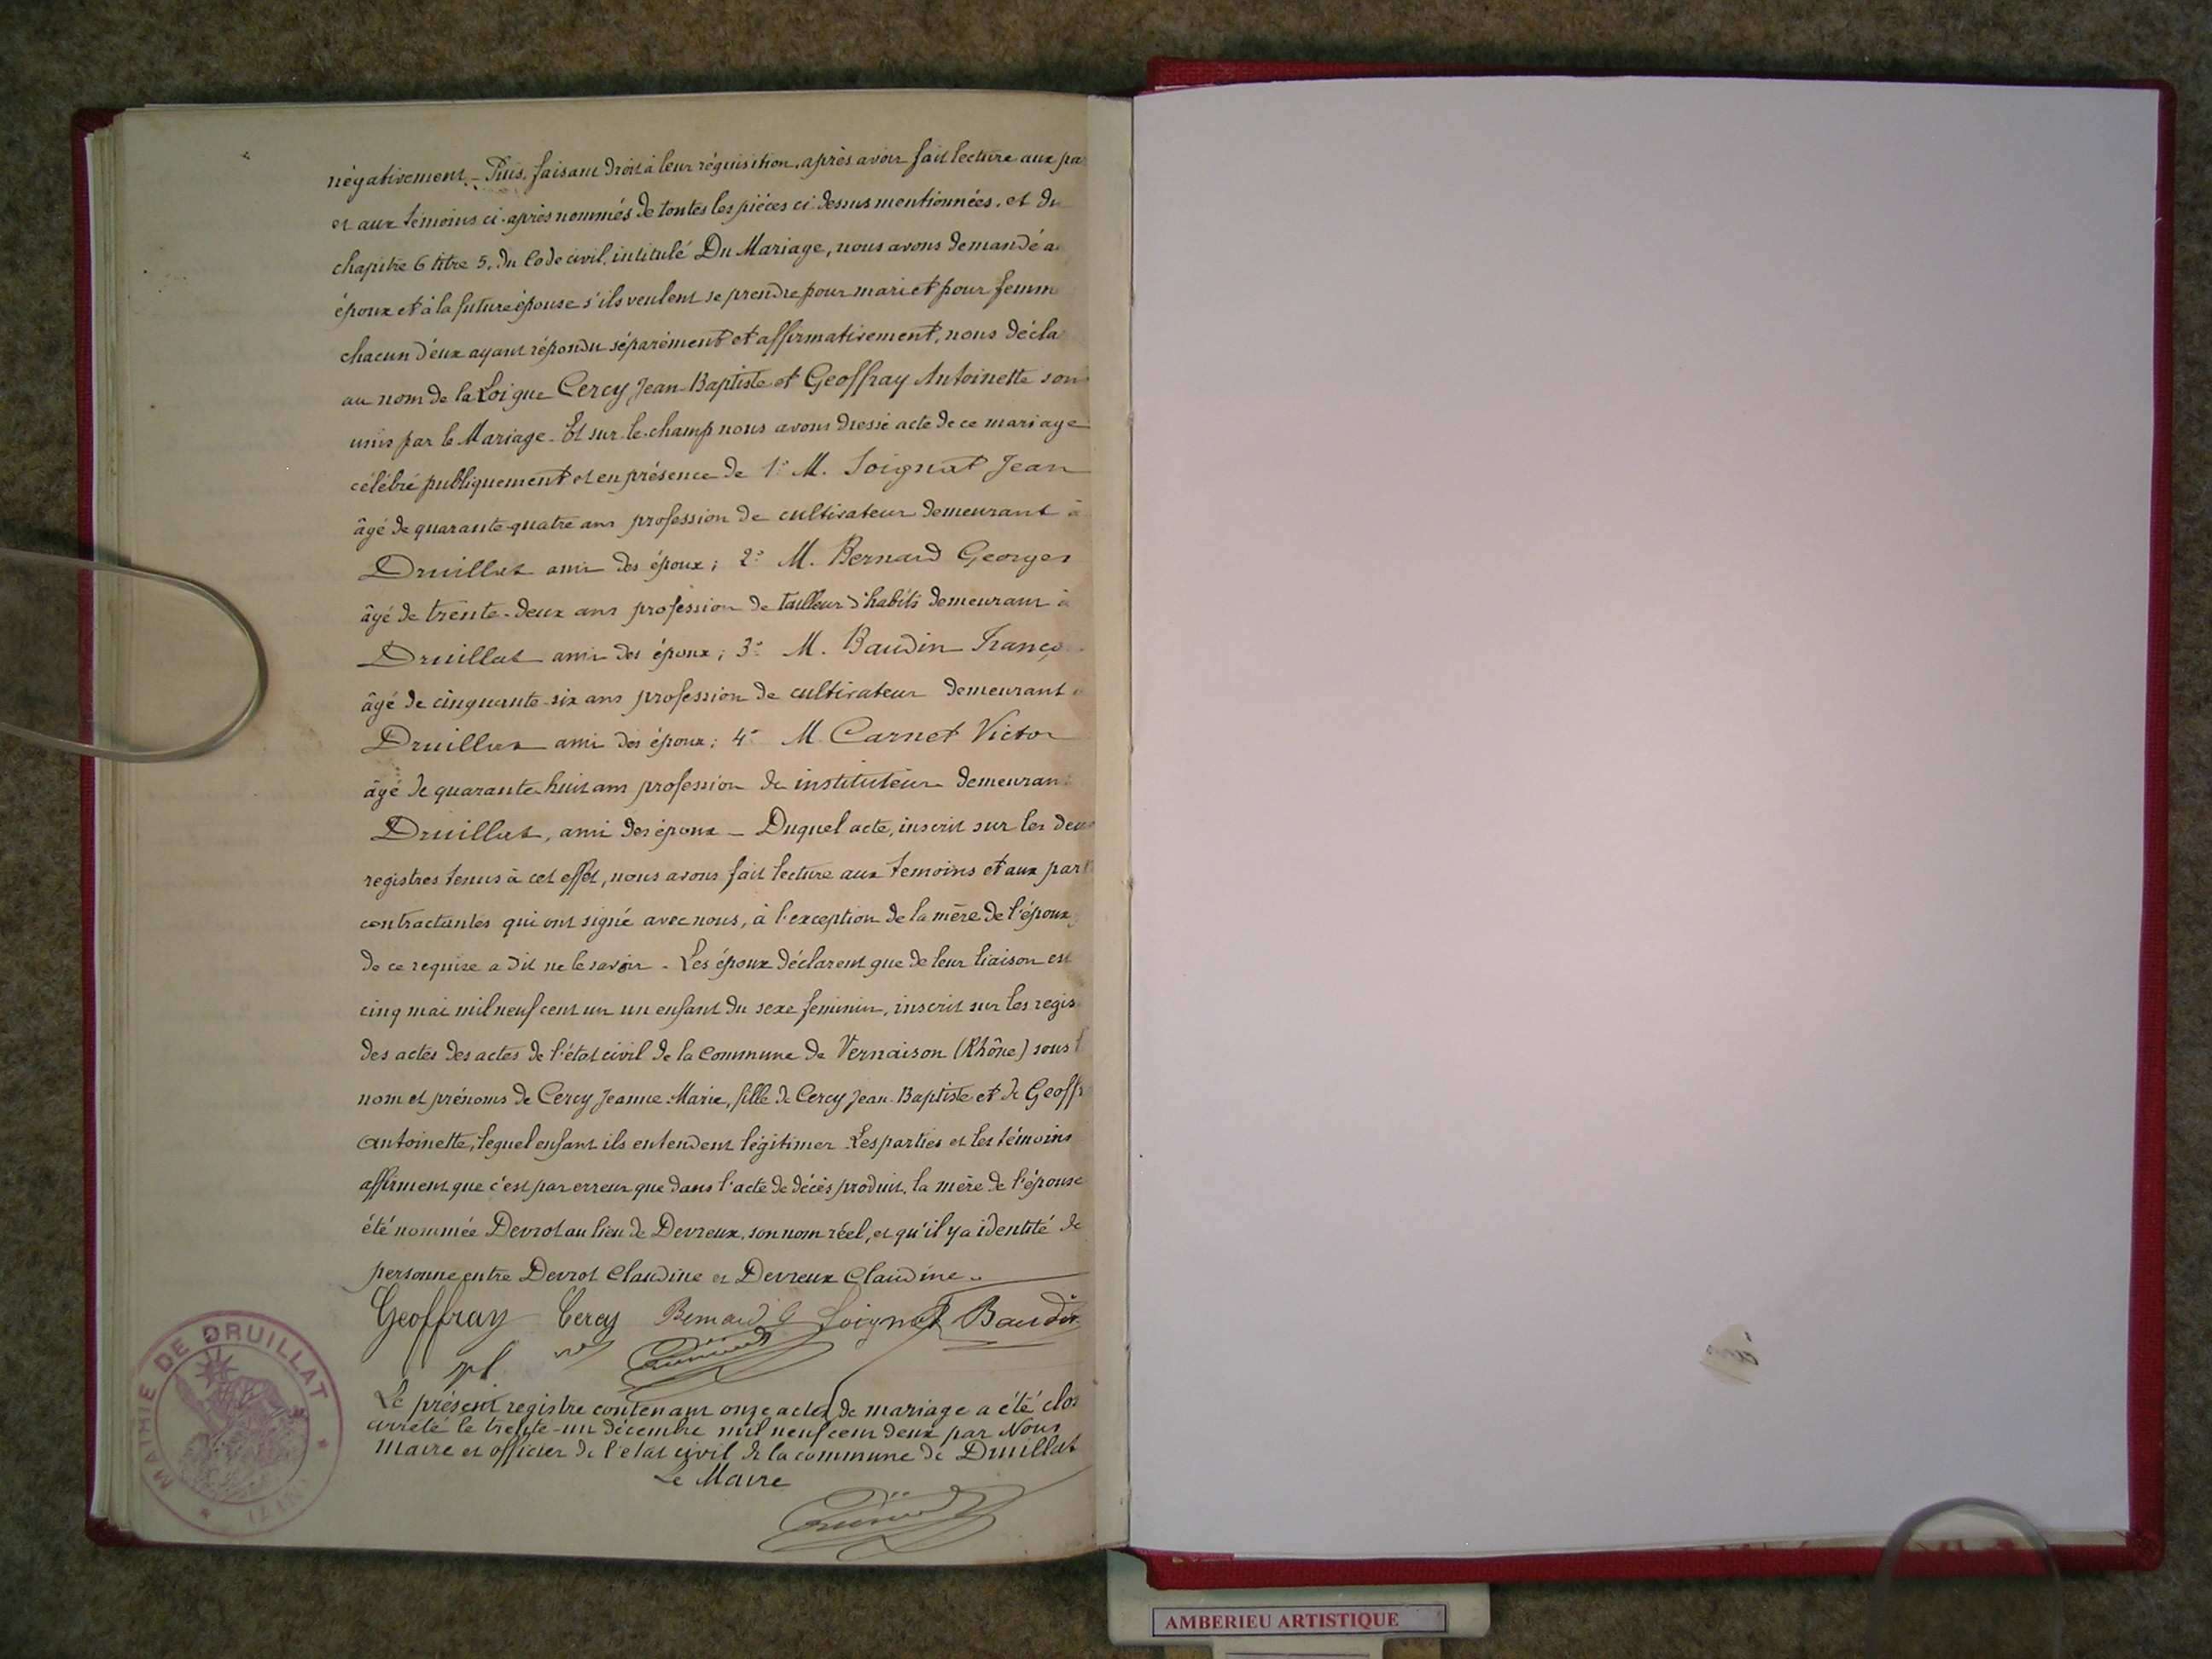 négativement. – Puis, faisant droit à leur réquisition, après avoir fait lecture aux pa
et aux témoins ci-après nommés de toutes les pièces ci-dessus mentionnées, et du
chapitre 6 titre 5, du Code civil, intitulé Du Mariage, nous avons demandé a
époux et à la future épouse s'ils veulent se prendre pour mari et pour femm
chacun d'eux ayant répondu séparément et affirmativement, nous décla
au nom de la Loi que Cercy Jean-Baptiste et Geoffray Antoinette son
unis par le Mariage. Et sur-le-champ nous avons dressé acte de ce mariage
célébré publiquement et en présence de 1° M. Soignat Jean
âgé de quarante-quatre ans profession de cultivateur demeurant à
Druillat ami des époux ; 2° M. Bernard Georges
âgé de trente-deux ans profession de tailleur d'habits demeurant à
Druillat ami des époux ; 3° M. Baudin Franço
âgé de cinquante-six ans profession de cultivateur demeurant à
Druillat ami des époux ; 4° M. Carnet Victor
âgé de quarante-huit ans profession de instituteur demeuran
Druillat, ami des époux – Duquel acte, inscrit sur les deux
registres tenus à cet effet, nous avons fait lecture aux temoins et aux part
contractantes qui ont signé avec nous, à l'exception de la mère de l'époux
de ce requise a dit ne le savoir. Les époux déclarent que de leur liaison est
cinq mai mil neuf cent un un enfant du sexe feminin, inscrit sur les regis
des actes des actes de l'état civil de la Commune de Vernaison (Rhône) sous l
nom et prénoms de Cercy Jeanne-Marie, fille de Cercy Jean-Baptiste et de Geoff
Antoinette, lequel enfant ils entendent légitimer. Les parties et les témoins
affirment que c'est par erreur que dans l'acte de décès produit, la mère de l'épouse
été nommée Devrot au lieu de Devreux, son nom réel, et qu'il y a identité de
personne entre Devrot Claudine et Devreux Claudine.
Geoffray Cercy Bernard G Soignat Baudin
Le présent registre contenant onze actes de mariage a été clos
arrêté le trente-un décembre mil neuf cent deux par Nous
Maire et officier de l'état civil de la commune de Druillat
Le Maire
MAIRIE DE DRUILLAT
AMBERIEU ARTISTIQUE